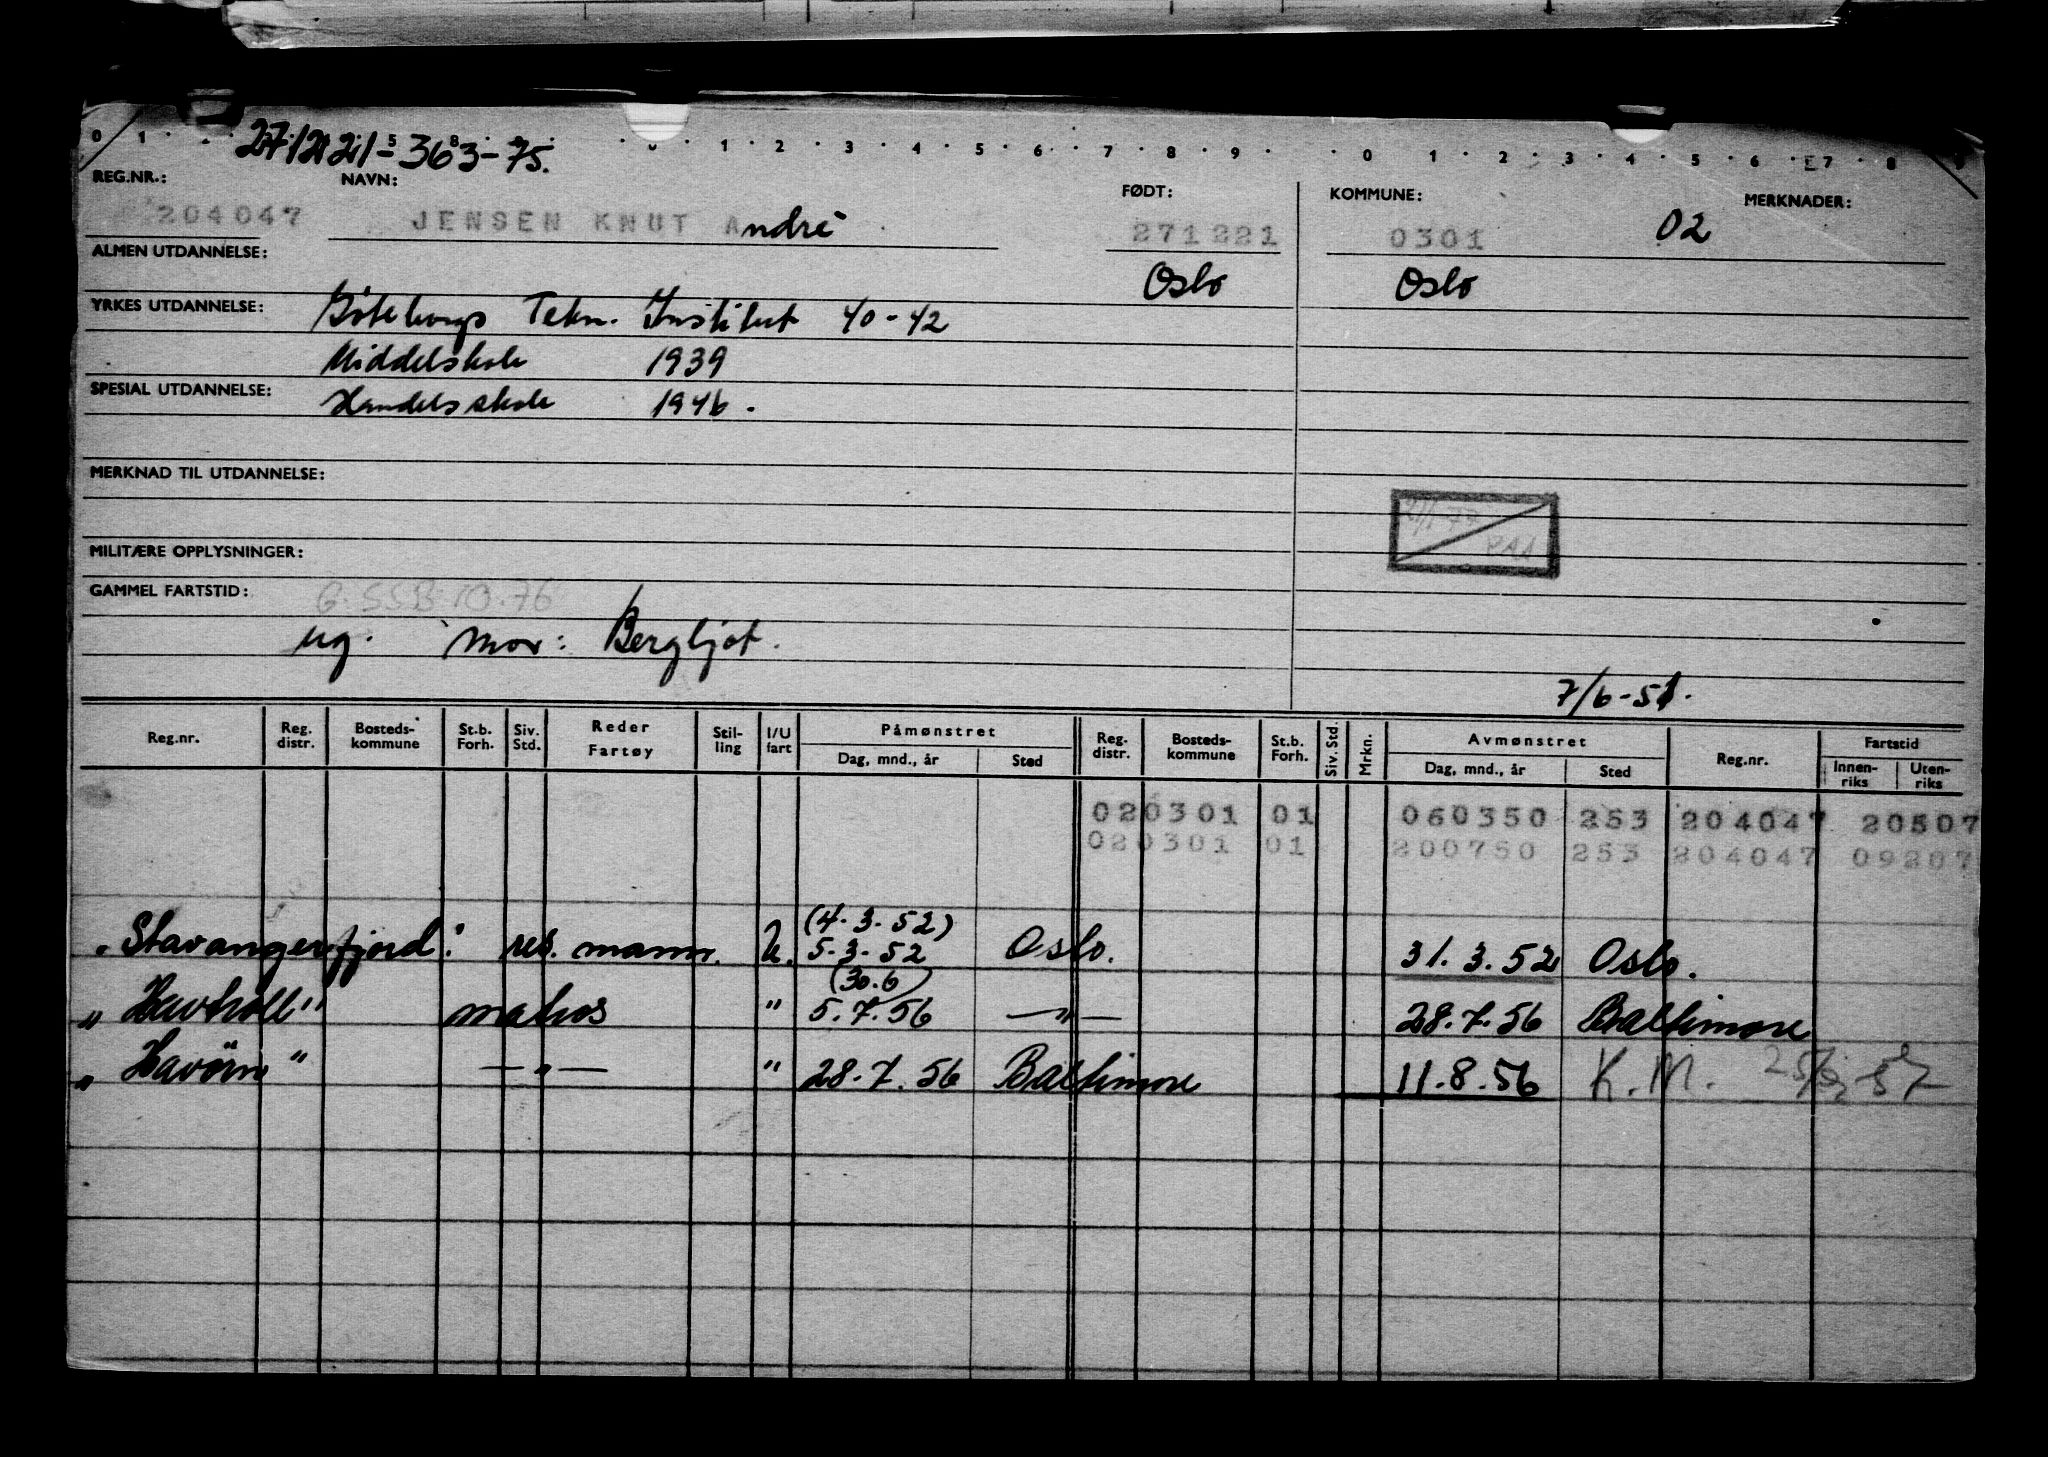 0 1 5 8 1 2 3 4 5 6 7 8 9 0 1 2 3 4 5 6 7 8 9
271221-363-75.
REG.NR.: NAVN: FØDT: KOMMUNE: MERKNADER:
204047 JENSEN KNUT André 271221 0301 02
ALMEN UTDANNELSE: Oslo Oslo
YRKES UTDANNELSE: Göteborgs Tekn. Institut 40-42
Middelskole 1939
SPESIAL UTDANNELSE: Handelsskole 1946.
MERKNAD TIL UTDANNELSE:
PAA
MILITÆRE OPPLYSNINGER:
GAMMEL FARTSTID: G. SSB 10.76
ug. mor: Bergljot.
7/6-51.
Reg.nr. Reg. distr. Bosteds-kommune St.b. Forh. Siv. Std. Reder Fartøy Stil-ling I/U fart Påmønstret Dag, mnd., år Sted Reg. distr. Bosteds-kommune St.b. Forh. Siv. Std. Mrkn. Avmønstret Dag, mnd., år Sted Reg.nr. Fartstid Innen-riks Uten-riks
020301 01 060350 253 204047 20507
020301 01 200750 253 204047 09207
(4.3.52)
"Stavangerfjord" res. mann. U. 5.3.52 Oslo. 31.3.52 Oslo.
(30.6)
"Havtroll" matros " 5.7.56 —"— 28.7.56 Baltimore
"Havörn" —"— " 28.7.56 Baltimore 11.8.56 K.M.